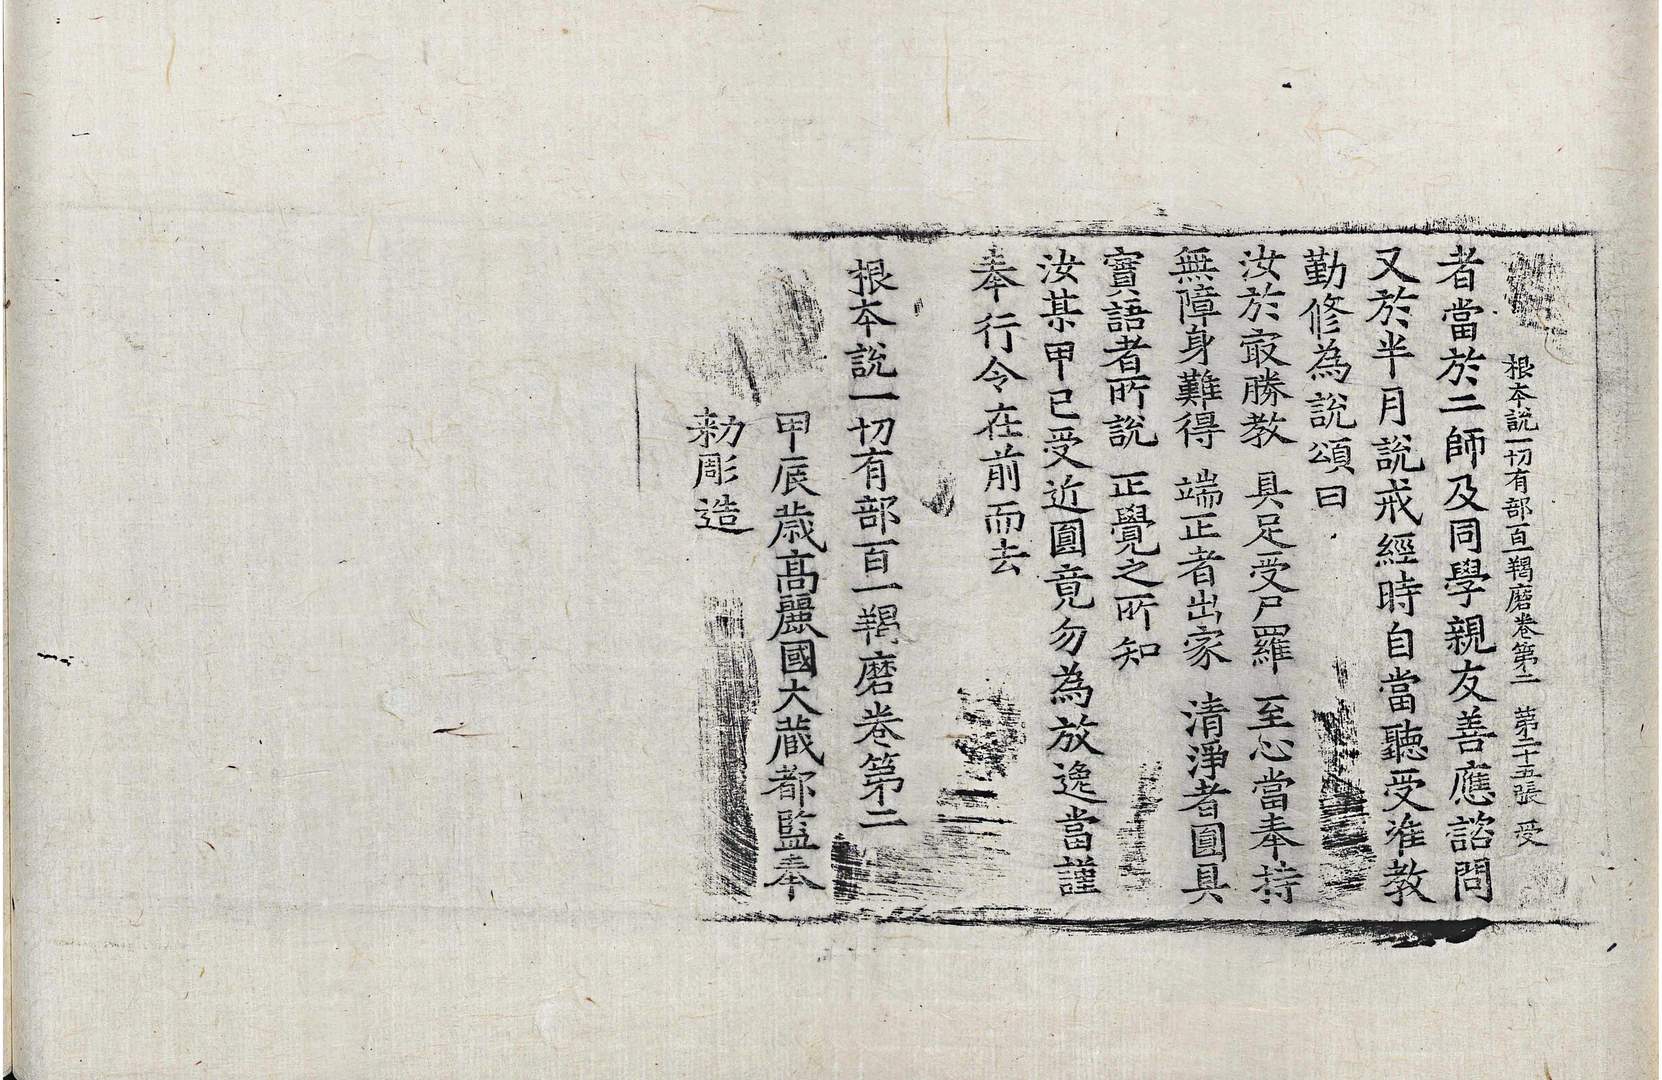 根本說一切有部百一羯磨卷第二 第二十五張 受
者當於二師及同學親友善應諮問
又於半月說戒經時自當聽受准教
勤修為說頌曰
汝於㝡勝教 具足受尸羅 至心當奉持
無障身難得 端正者出家 清淨者圓具
實語者所說 正覺之所知
汝某甲已受近圓竟勿為放逸當謹
奉行令在前而去
根本說一切有部百一羯磨卷第二
甲辰歲高麗國大藏都監奉
勑彫造